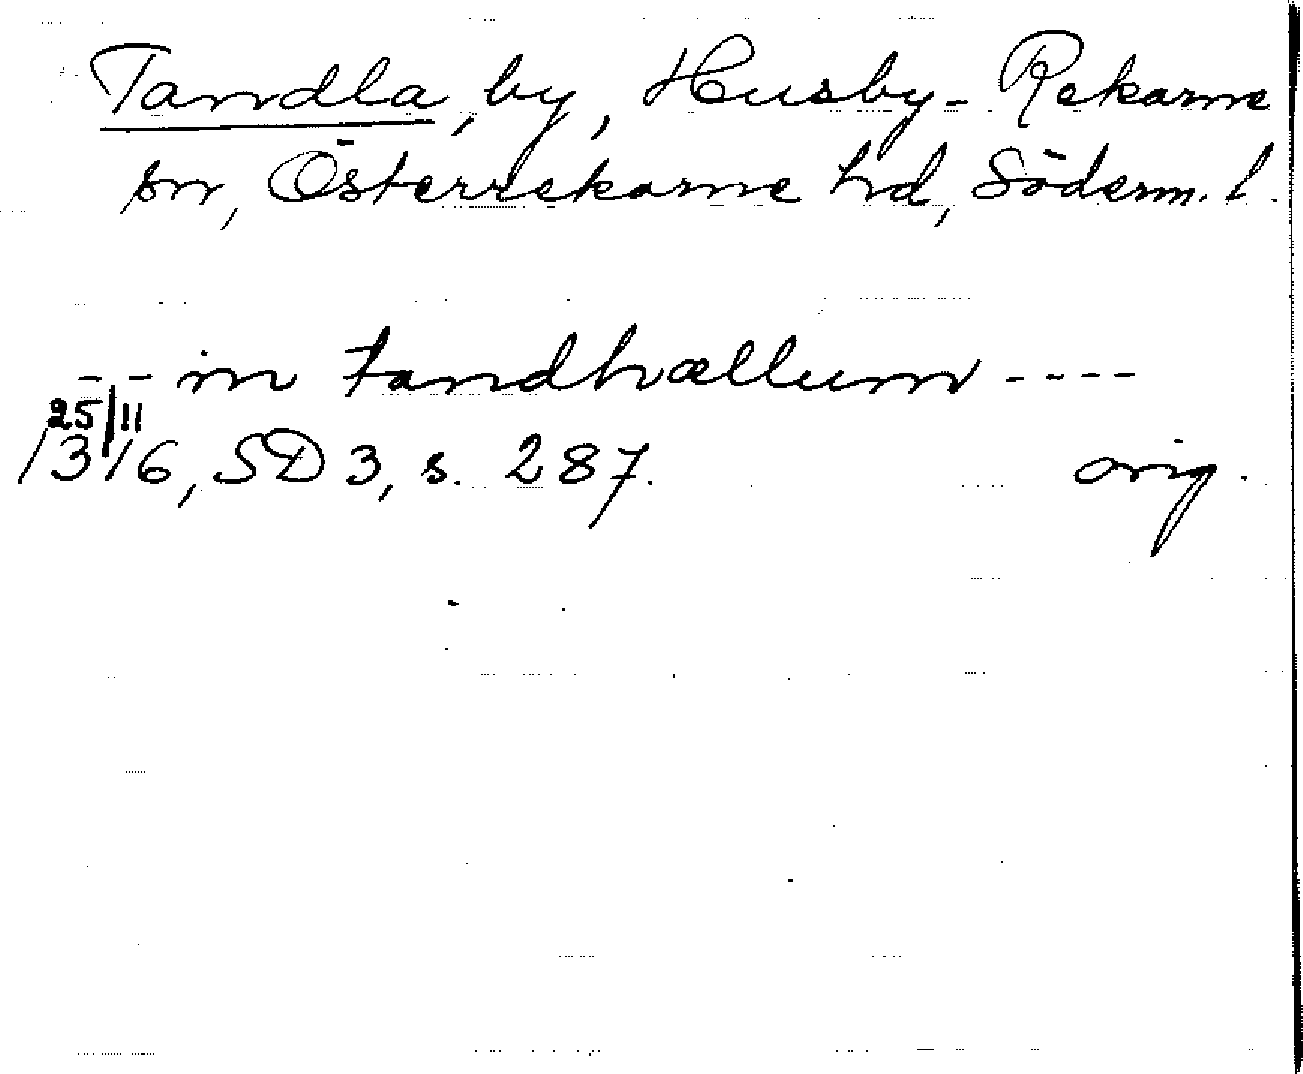 Tandla, by, Husby-Rekarne
sn, Österrekarne hd, Söderm. l.
-- in tandhællum ----
25/11
1316, SD 3, s. 287. orig.